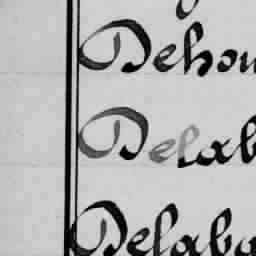 Dehou
Delab
Delaba